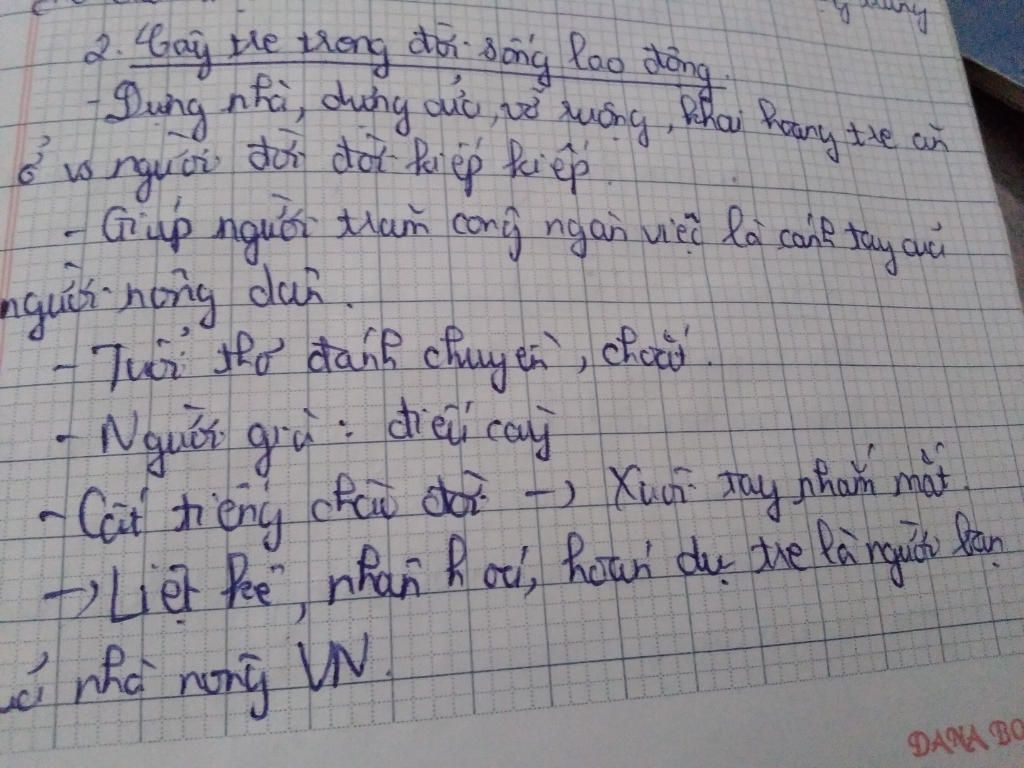 2. Cây tre trong đời sống lao động.
- Dựng nhà, dựng cửa, vỡ ruộng, khai hoang tre ăn
ở vs người đời đời kiếp kiếp.
- Giúp người trăm công ngàn việc là cánh tay của
người nông dân.
- Tuổi thơ đánh chuyền, chắt.
- Người già: điếu cày
- Cất tiếng chào đời → Xuôi tay nhắm mắt.
→ Liệt kê, nhân hoá, hoán dụ tre là người bạn
nhà nông VN.
DANA BO